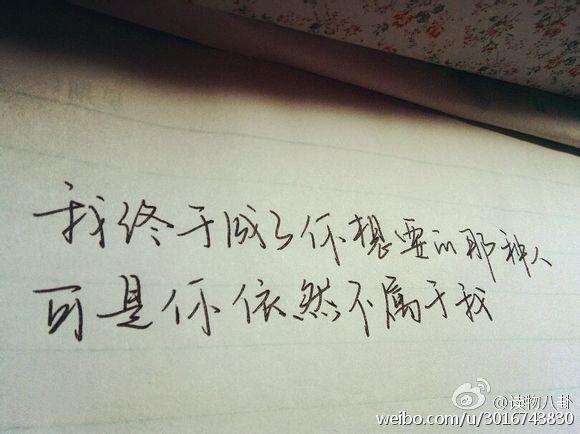 我终于成了你想要的那种人
可是你依然不属于我
@读物八卦
weibo.com/u/3016743830